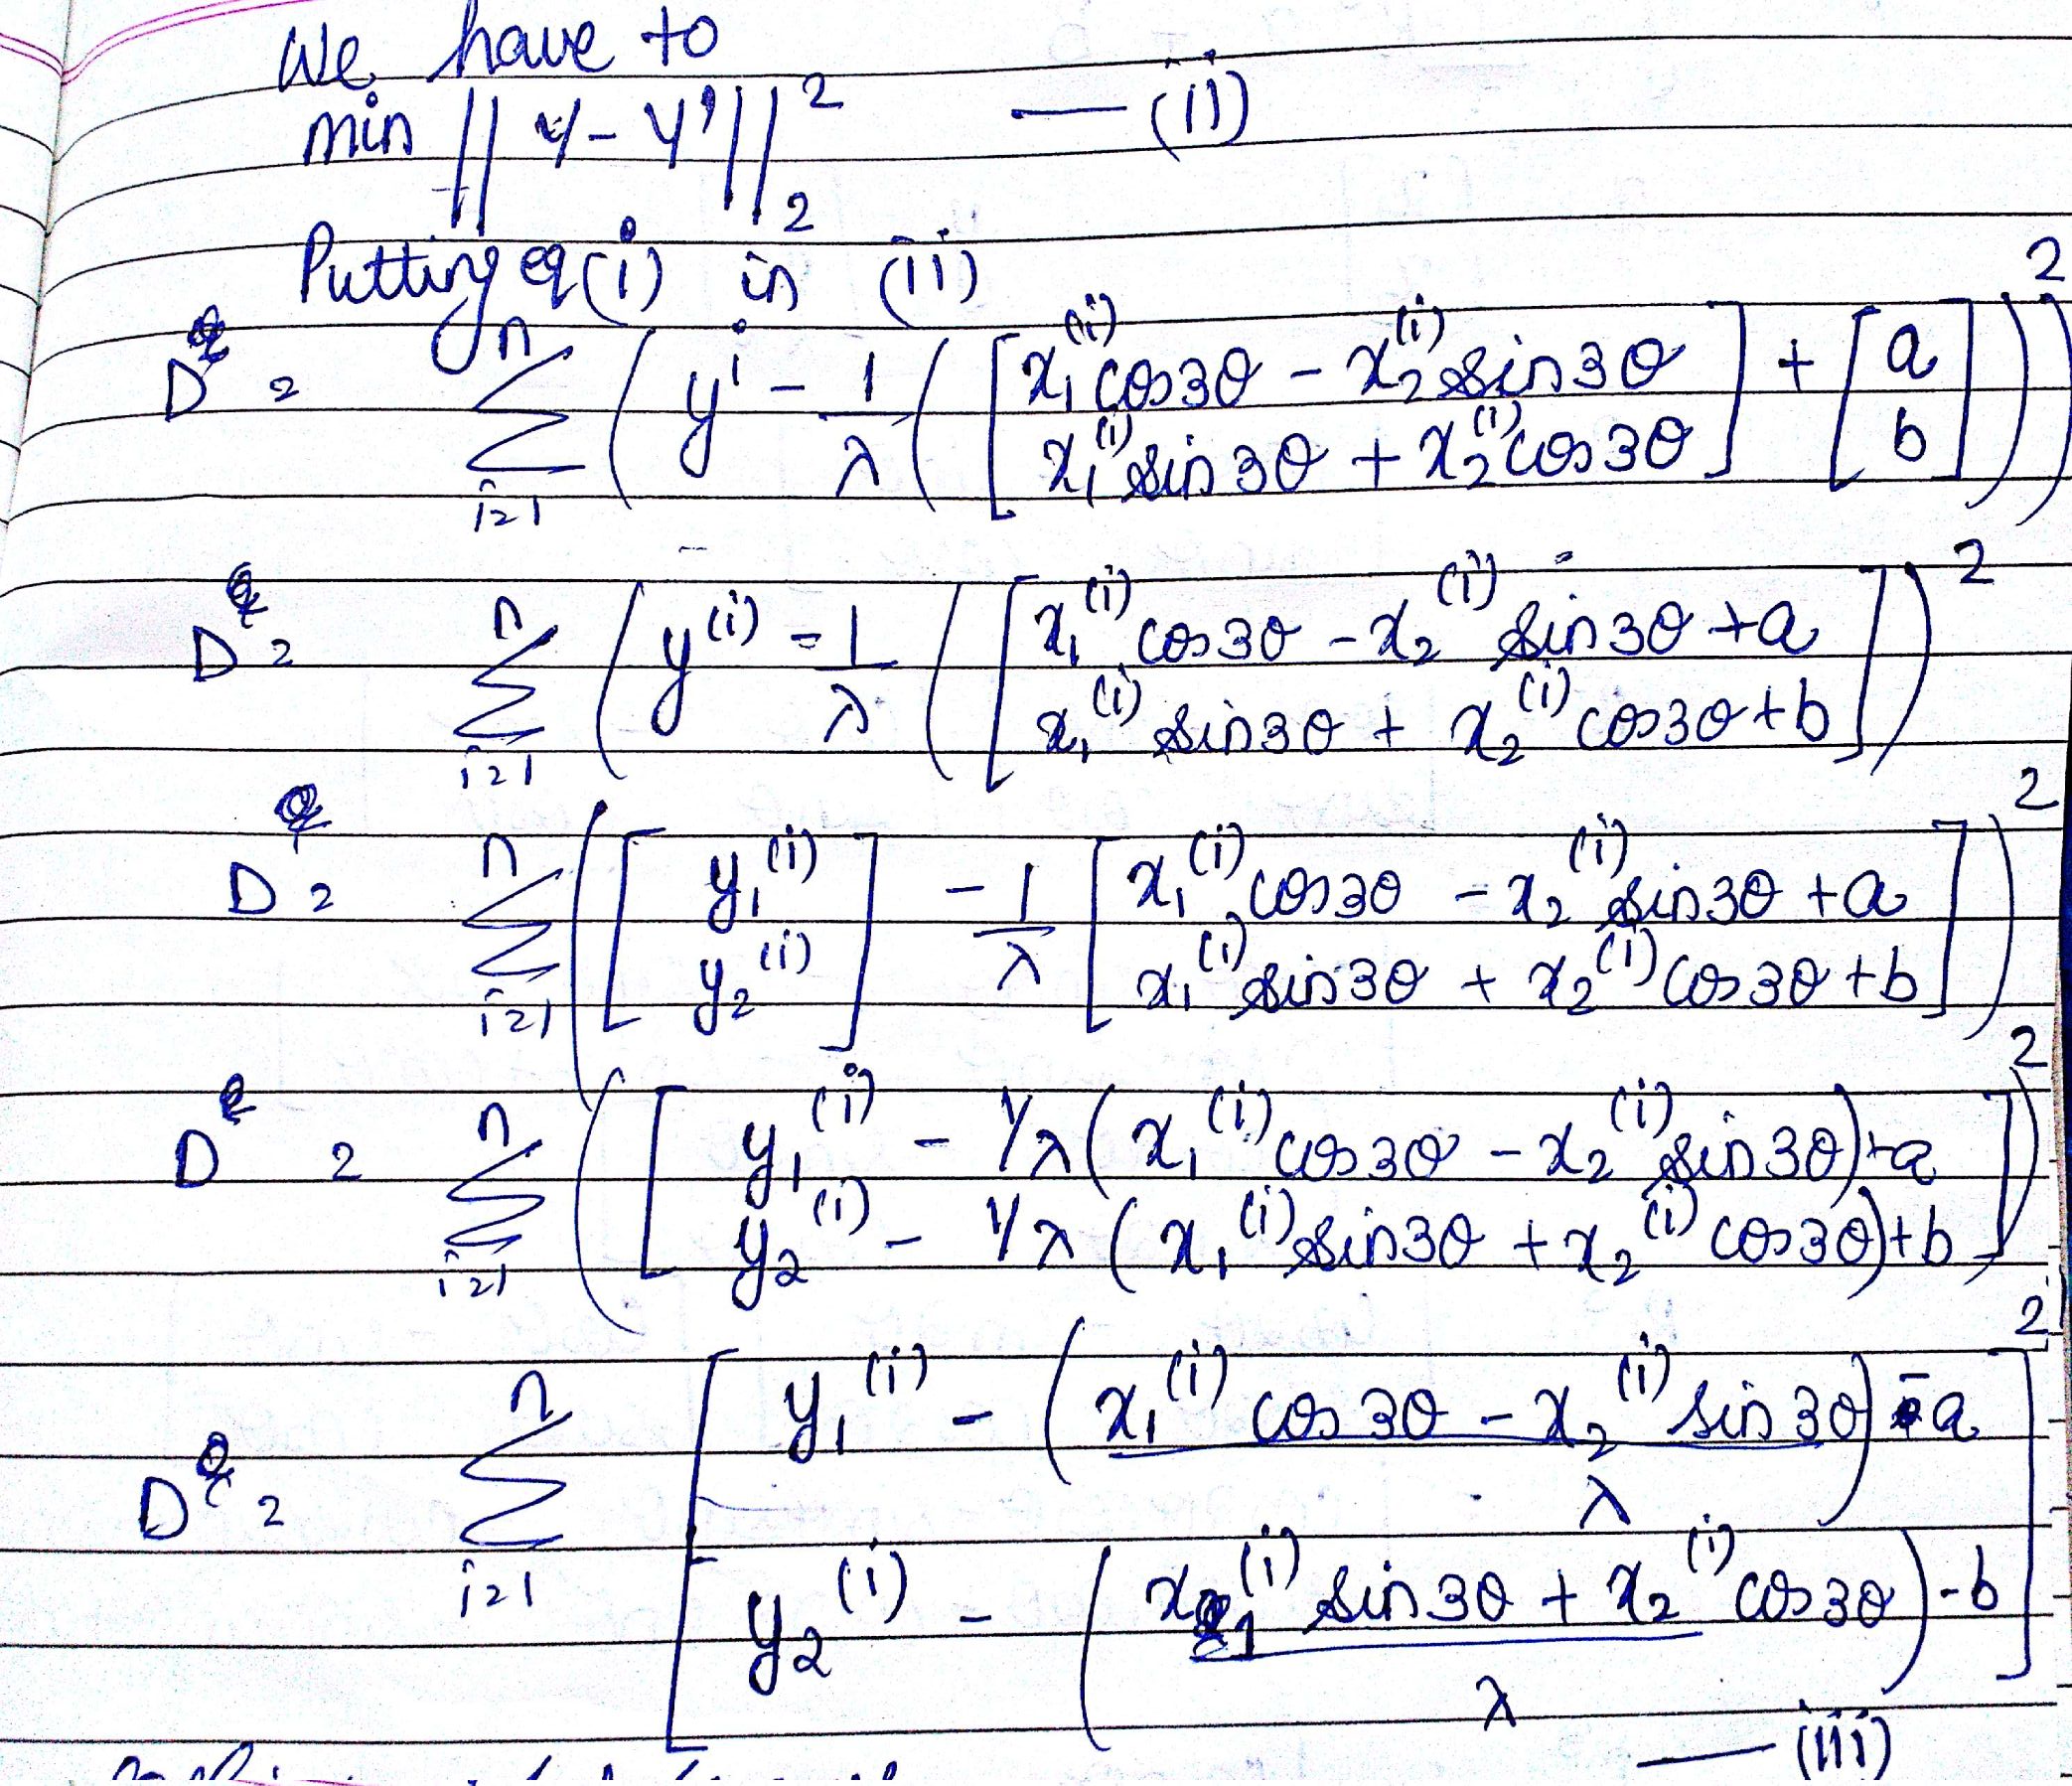 We have to
min || y - y' ||₂² — (ii)
Putting eq (i) in (ii)
D = Σ_{i=1}^{n} ( yⁱ - 1/λ ( [ x₁⁽ⁱ⁾cos3θ - x₂⁽ⁱ⁾sin3θ ; x₁⁽ⁱ⁾sin3θ + x₂⁽ⁱ⁾cos3θ ] + [ a ; b ] ) )²
D = Σ_{i=1}^{n} ( y⁽ⁱ⁾ - 1/λ ( [ x₁⁽ⁱ⁾cos3θ - x₂⁽ⁱ⁾ sin3θ + a ; x₁⁽ⁱ⁾ sin3θ + x₂⁽ⁱ⁾ cos3θ + b ] )²
D = Σ_{i=1}^{n} ( [ y₁⁽ⁱ⁾ ; y₂⁽ⁱ⁾ ] - 1/λ [ x₁⁽ⁱ⁾cos3θ - x₂⁽ⁱ⁾sin3θ + a ; x₁⁽ⁱ⁾sin3θ + x₂⁽ⁱ⁾cos3θ + b ] )²
D = Σ_{i=1}^{n} ( [ y₁⁽ⁱ⁾ - 1/λ ( x₁⁽ⁱ⁾cos3θ - x₂⁽ⁱ⁾sin3θ) + a ; y₂⁽ⁱ⁾ - 1/λ ( x₁⁽ⁱ⁾sin3θ + x₂⁽ⁱ⁾cos3θ) + b ] )²
D = Σ_{i=1}^{n} [ y₁⁽ⁱ⁾ - ( (x₁⁽ⁱ⁾ cos3θ - x₂⁽ⁱ⁾ sin3θ) / λ ) - a ; y₂⁽ⁱ⁾ - ( (x₁⁽ⁱ⁾ sin3θ + x₂⁽ⁱ⁾ cos3θ) / λ ) - b ]²
— (iii)